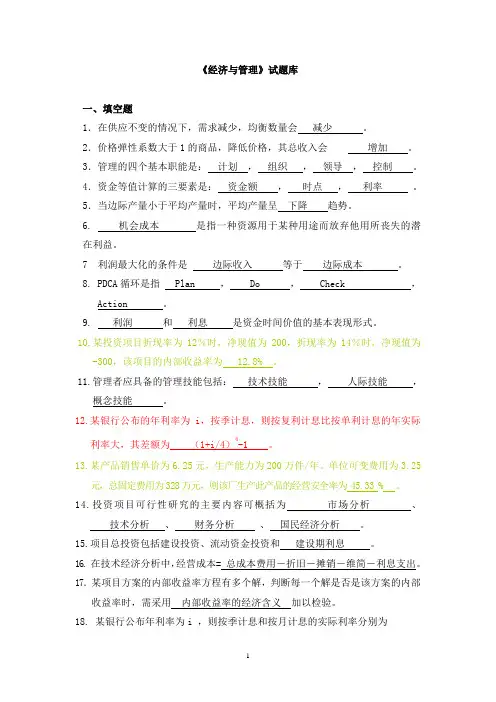 《经济与管理》试题库
一、填空题
1．在供应不变的情况下，需求减少，均衡数量会 减少 。
2．价格弹性系数大于1的商品，降低价格，其总收入会 增加 。
3．管理的四个基本职能是： 计划 ， 组织 ， 领导 ， 控制 。
4．资金等值计算的三要素是： 资金额 ， 时点 ， 利率 。
5．当边际产量小于平均产量时，平均产量呈 下降 趋势。
6. 机会成本 是指一种资源用于某种用途而放弃他用所丧失的潜
在利益。
7 利润最大化的条件是 边际收入 等于 边际成本 。
8. PDCA循环是指 Plan ， Do ， Check ，
Action 。
9. 利润 和 利息 是资金时间价值的基本表现形式。
10.某投资项目折现率为12％时，净现值为200，折现率为14％时，净现值为
-300，该项目的内部收益率为 12.8% 。
11.管理者应具备的管理技能包括： 技术技能 ， 人际技能 ，
概念技能 。
12.某银行公布的年利率为i，按季计息，则按复利计息比按单利计息的年实际
利率大，其差额为 （1+i/4）⁴-1 。
13.某产品销售单价为6.25元，生产能力为200万件/年，单位可变费用为3.25
元，总固定费用为328万元，则该厂生产此产品的经营安全率为 45.33 % 。
14.投资项目可行性研究的主要内容可概括为 市场分析 、
技术分析 、 财务分析 、 国民经济分析 。
15.项目总投资包括建设投资、流动资金投资和 建设期利息 。
16. 在技术经济分析中，经营成本= 总成本费用－折旧－摊销－维简－利息支出。
17. 某项目方案的内部收益率方程有多个解，判断每一个解是否是该方案的内部
收益率时，需采用 内部收益率的经济含义 加以检验。
18. 某银行公布年利率为i ，则按季计息和按月计息的实际利率分别为
1